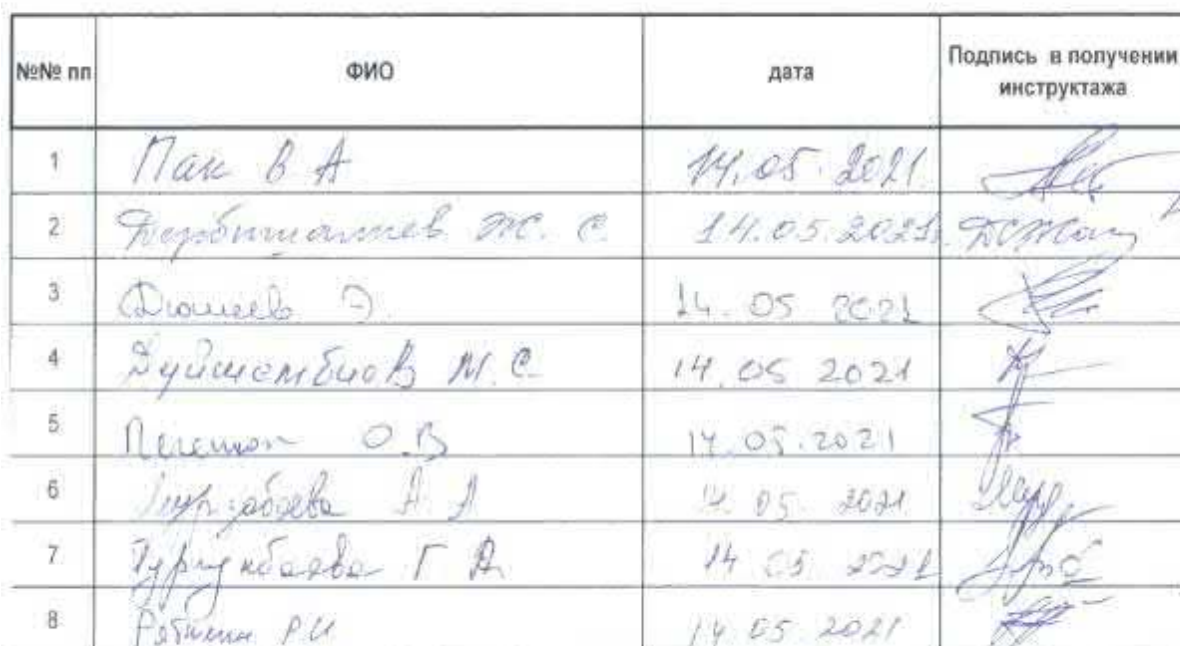 №№ пп ФИО дата Подпись в получении инструктажа
1 Пак В А 14.05.2021
2 Дербишалиев Ж. С. 14.05.2021
3 Дюшеева Э. 14.05 2021
4 Дуйшембиов М. С. 14.05 2021
5 О.В 14.05.2021
6 А 14.05. 2021
7 Г А 14 05 2021
8 Рябинин РИ 14 05 2021